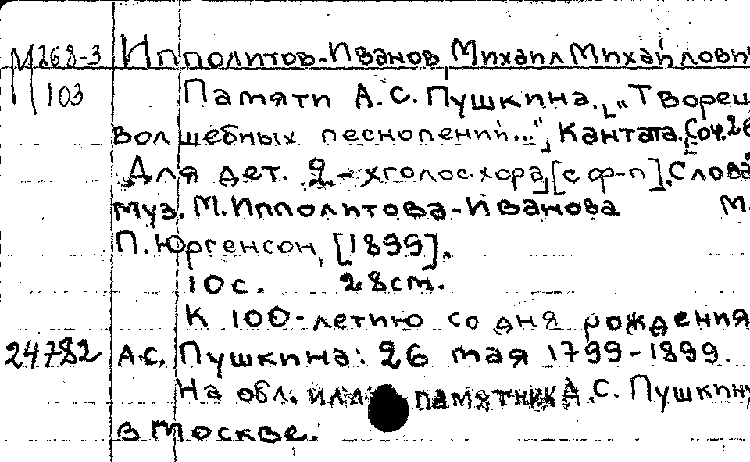 М268-3 Ипполитов-Иванов Михаил Михайлови
103 Памяти А.С. Пушкина. „Творец
волшебных песнопений...", Кантата. Соч. 26
Для дет. 2-хголос. хора, [с ф-п]. Слова
муз. М. Ипполитова-Иванова М.
П. Юргенсон, [1899].
10с. 28cm.
К 100-летию со дня рождения
24782 А.С. Пушкина: 26 мая 1799-1899.
На обл. илл. памятника А.С. Пушкину
в Москве.